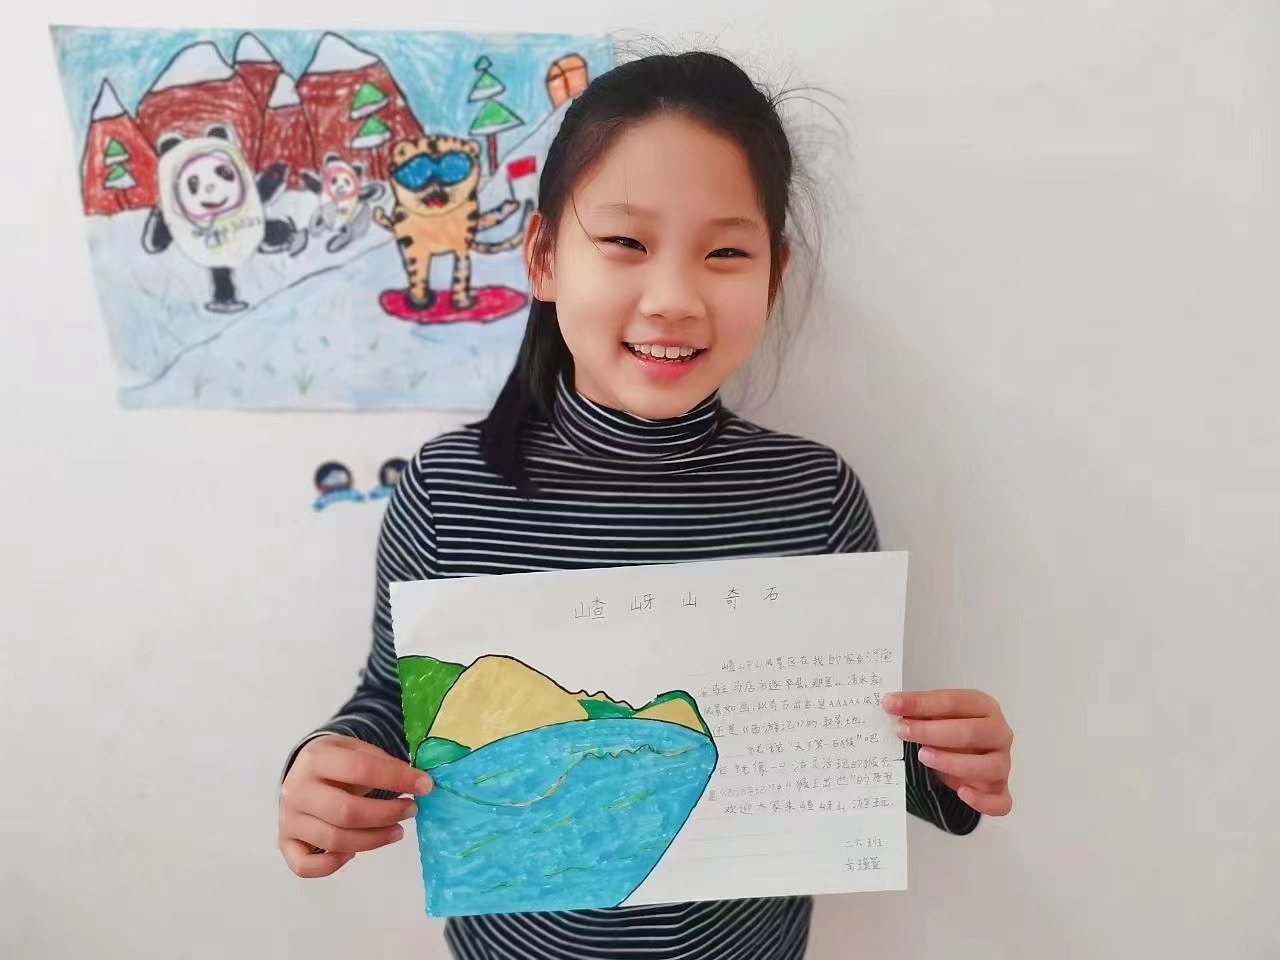 嵖岈山奇石
嵖岈山风景区在我的家乡河南
省驻马店市遂平县。那里山清水秀,
风景如画,以奇石出名,是AAAAA风景
还是《西游记》的取景地。
就说“天下第一石猴”吧
它就像一只活灵活现的猴
是《西游记》中“猴王出世”的原型。
欢迎大家来嵖岈山游玩。
二六班